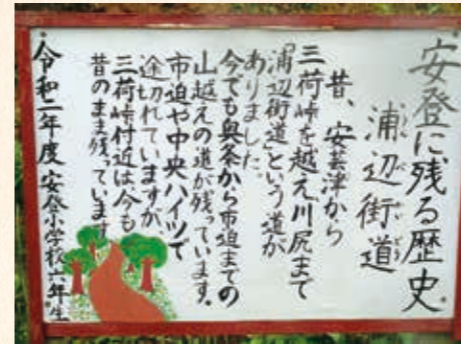 安登に残る歴史
浦辺街道
昔、安芸津から
三荷峠を越え川尻まで
「浦辺街道」という道が
ありました。
今でも奥条から市迫までの
山越えの道が残っています。
市迫や中央ハイツで
途切れていますが
三荷峠付近は、今も
昔のまま残っています
令和二年度 安登小学校六年生